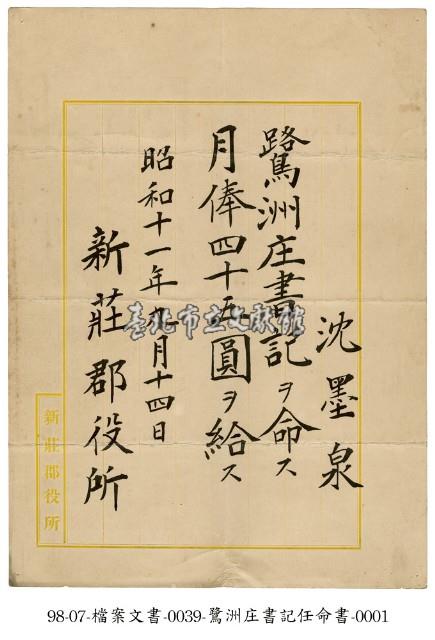 沈墨泉
鷺洲庄書記ヲ命ス
月俸四十五圓ヲ給ス
昭和十一年九月十四日
新莊郡役所
新莊郡役所
臺北市立文獻館
98-07-檔案文書-0039-鷺洲庄書記任命書-0001